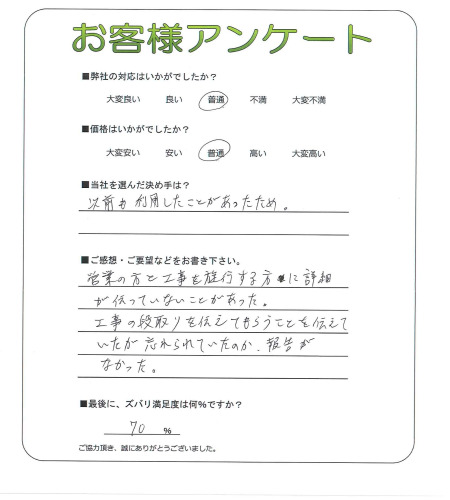 お客様アンケート
■弊社の対応はいかがでしたか?
大変良い 良い 普通 不満 大変不満
■価格はいかがでしたか?
大変安い 安い 普通 高い 大変高い
■当社を選んだ決め手は?
以前も利用したことがあったため。
■ご感想・ご要望などをお書き下さい。
営業の方と工事を施行する方に詳細
が伝っていないことがあった。
工事の段取りを伝えてもらうことを伝えて
いたが忘れられていたのか、報告が
なかった。
■最後に、ズバリ満足度は何%ですか?
70 %
ご協力頂き、誠にありがとうございました。